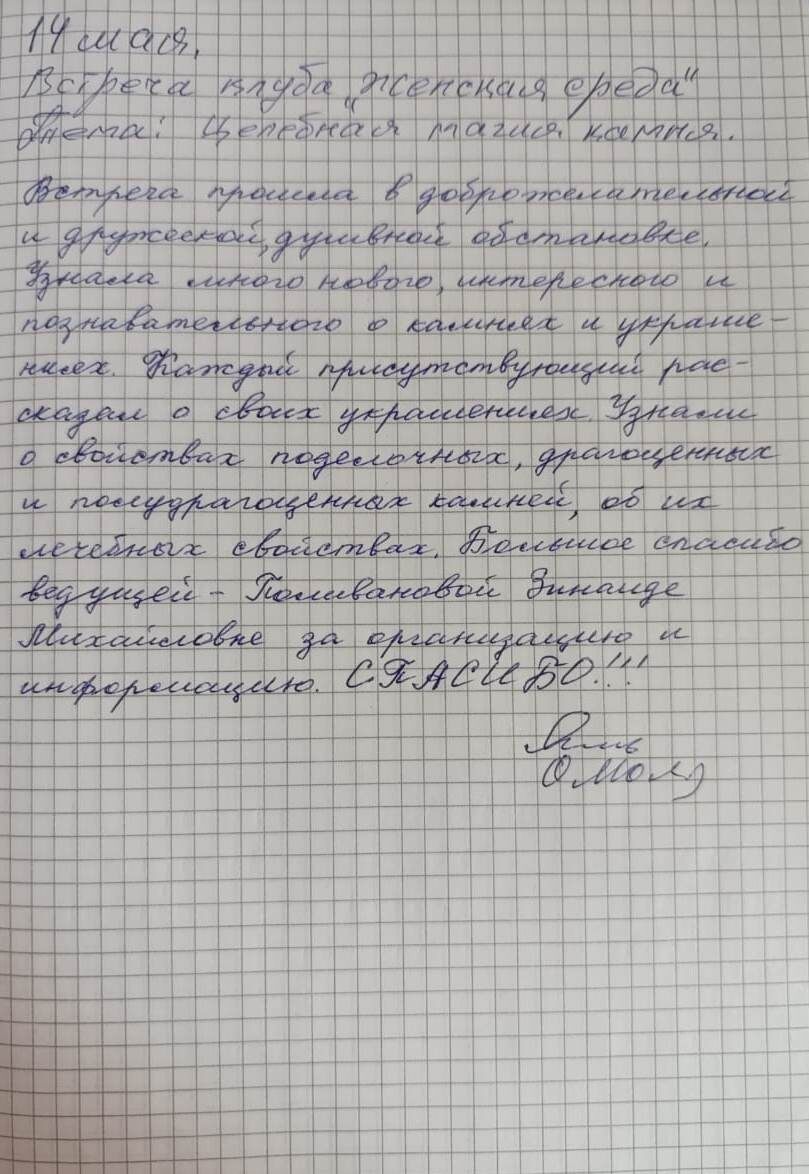 14 мая.
Встреча клуба „Женская среда"
Тема: Целебная магия камня.
Встреча прошла в доброжелательной
и дружеской, душевной обстановке.
Узнала много нового, интересного и
познавательного о камнях и украше-
ниях. Каждый присутствующий рас-
сказал о своих украшениях. Узнали
о свойствах поделочных, драгоценных
и полудрагоценных камней, об их
лечебных свойствах. Большое спасибо
ведущей - Поливановой Зинаиде
Михайловне за организацию и
информацию. СПАСИБО!!!